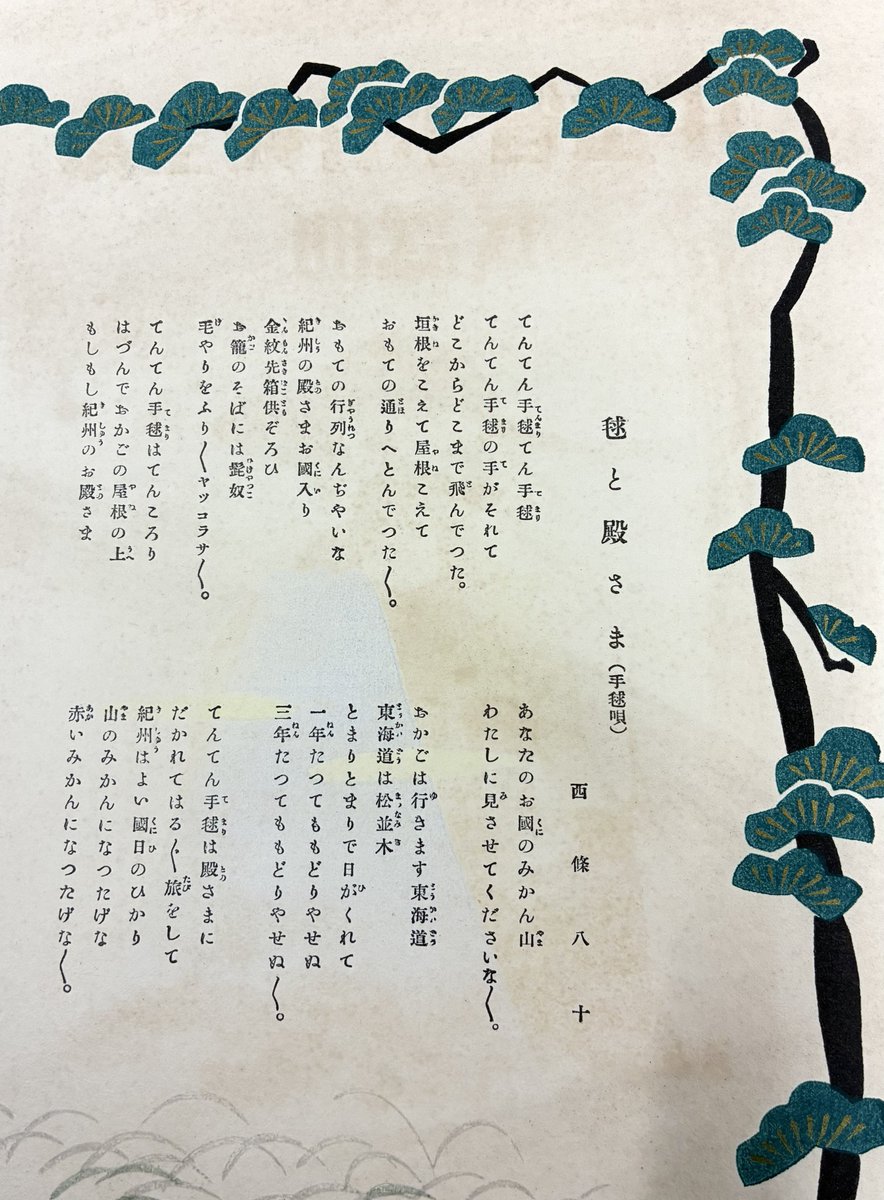 毬と殿さま(手毬唄)
西條八十
てんてん手毬てん手毬
てんてん手毬の手がそれて
どこからどこまで飛んでつた。
垣根をこえて屋根こえて
おもての通りへとんでつた〱。
おもての行列なんぢやいな
紀州の殿さまお國入り
金紋先箱供ぞろひ
お籠のそばには髭奴
毛やりをふり〱ヤッコラサ〱。
てんてん手毬はてんころり
はづんでおかごの屋根の上
もしもし紀州のお殿さま
あなたのお國のみかん山
わたしに見させてくださいな〱。
おかごは行きます東海道
東海道は松並木
とまりとまりで日がくれて
一年たつてももどりやせぬ
三年たつてももどりやせぬ〱。
てんてん手毬は殿さまに
だかれてはる〲旅をして
紀州はよい國日のひかり
山のみかんになつたげな
赤いみかんになつたげな〱。